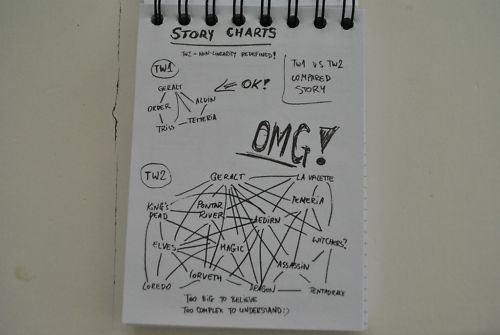 STORY CHARTS
TW2 - NON-LINEARITY REDEFINED!
TW1
TW1 VS TW2
COMPARED
STORY
GERALT
OK?
ORDER
ALVIN
TRISS
TEMERIA
OMG!
TW2
GERALT
LA VALETTE
KING'S
DEAD
PONTAR
RIVER
AEDIRN
TEMERIA
ELVES
MAGIC
WITCHERS?
ASSASSIN
LOREDO
IORVETH
DRAGON
PENTADRAKE
TOO BIG TO BELIEVE
TOO COMPLEX TO UNDERSTAND :)